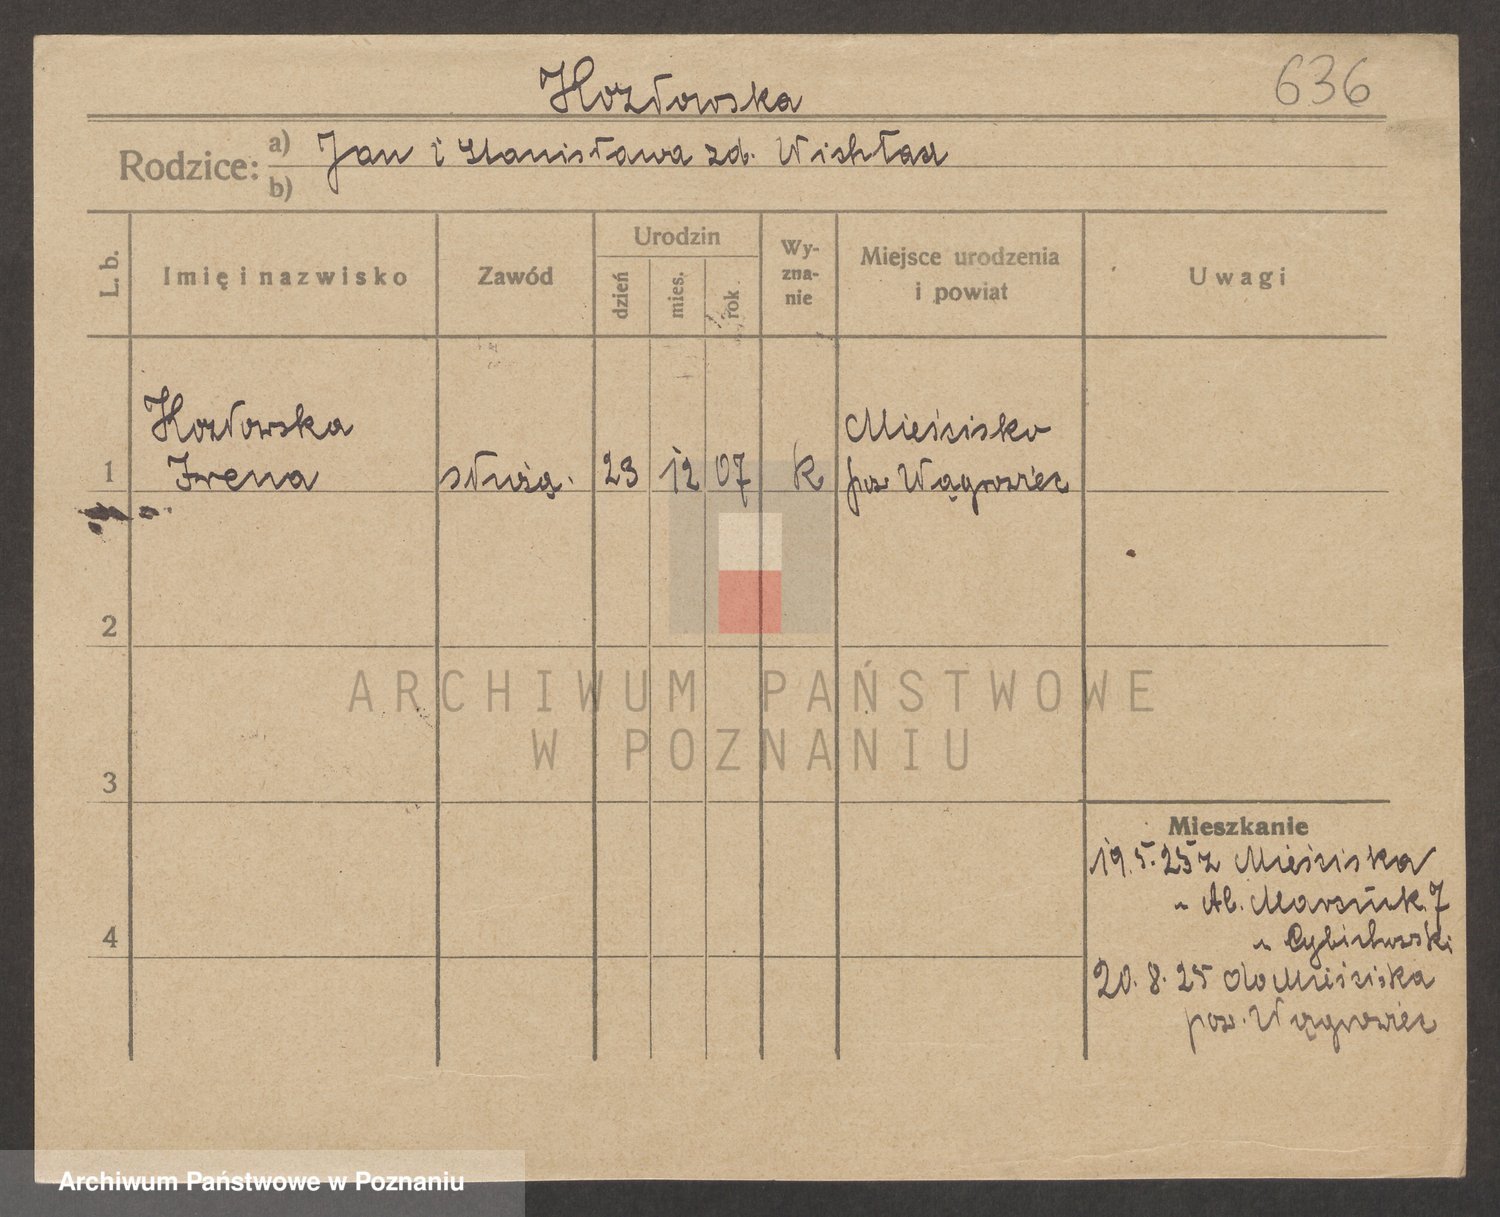 Kozłowska
636
Rodzice:
a) Jan i Stanisława zd.
b)
L. b.
Imię i nazwisko
Zawód
Urodzin
dzień
mies.
rok
Wy-
zna-
nie
Miejsce urodzenia
i powiat
Uwagi
Kozłowska
Irena
1
służą.
23
12
07
k
Mieścisko
pow Wągrowiec
2
3
4
Mieszkanie
19.5.25 z Mieściska
" Al. Marcink. 7
" Cybichowski
20.8.25 do Mieściska
pow. Wągrowiec
ARCHIWUM PAŃSTWOWE
W POZNANIU
Archiwum Państwowe w Poznaniu